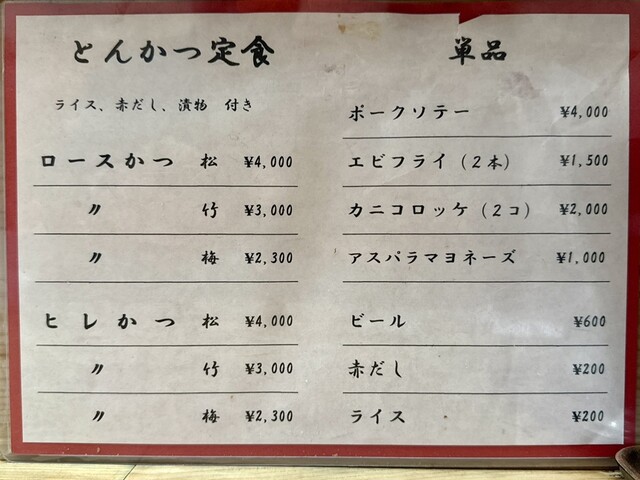 とんかつ定食
ライス、赤だし、漬物 付き
ロースかつ 松 ¥4,000
〃 竹 ¥3,000
〃 梅 ¥2,300
ヒレかつ 松 ¥4,000
〃 竹 ¥3,000
〃 梅 ¥2,300
単品
ポークソテー ¥4,000
エビフライ(2本) ¥1,500
カニコロッケ(2コ) ¥2,000
アスパラマヨネーズ ¥1,000
ビール ¥600
赤だし ¥200
ライス ¥200